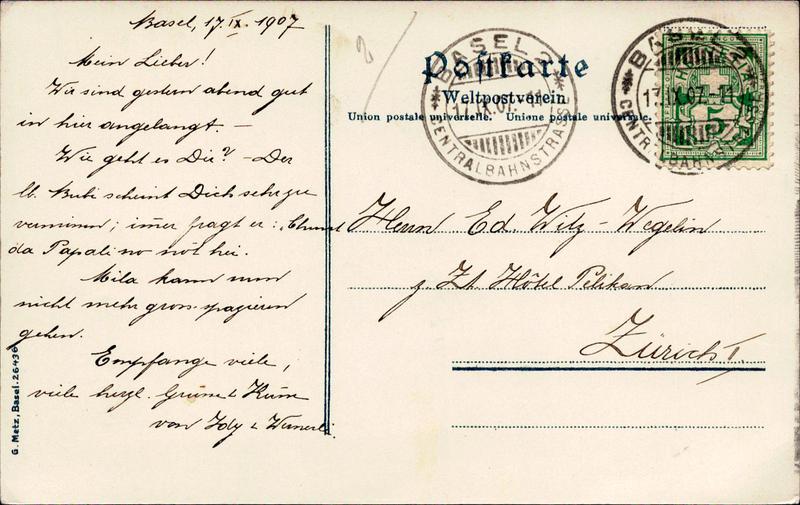 Basel, 17. IX. 1907
Mein Lieber!
Wir sind gestern abend gut
in hier angelangt. —
Wie geht es Dir? — Der
lb. Bubi scheint Dich sehr zu
vermissen; immer fragt er: Chunt
da Papali no nöt hei.
Mila kann nun
nicht mehr gross spazieren
gehen.
Empfange viele,
viele herzl. Grüsse & Küsse
von Idy & Wernerli.
G. Metz, Basel. 26436
2
Postkarte
Weltpostverein
Union postale universelle. Unione postale universale.
BASEL 2
17. IX. 07.-11
CENTRALBAHNSTRASSE
BASEL 2
17. IX. 07.-11
CENTRALBAHNSTR
5
Herrn Ed. Witz-Wegelin
z. Zt. Hôtel Pelikan
Zürich I.